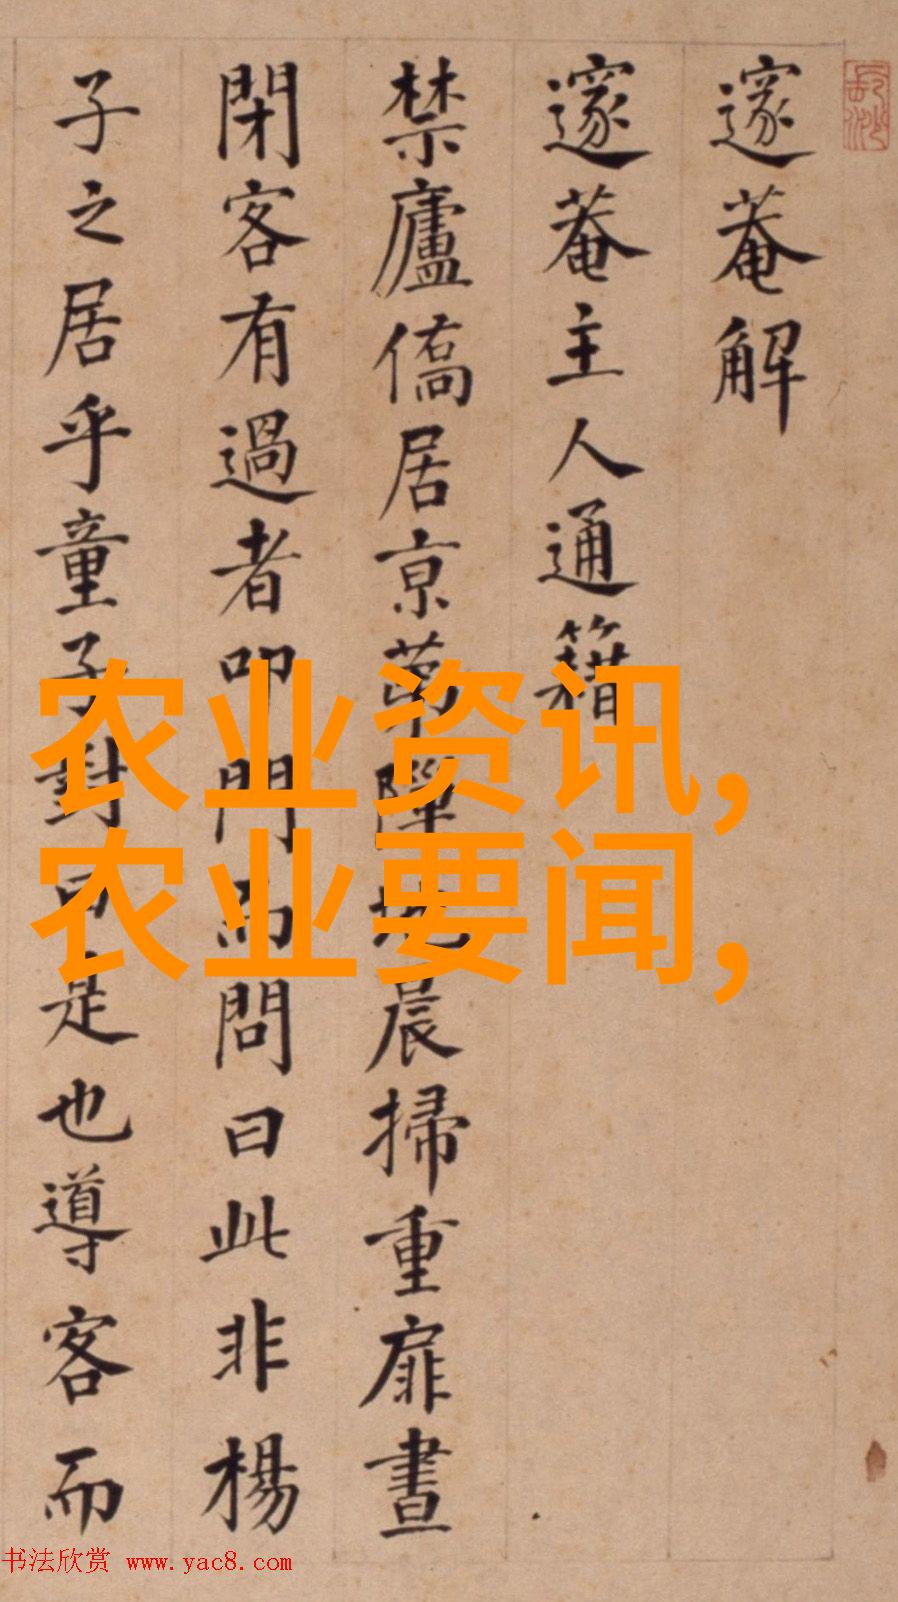 邃菴解
邃菴主人通籍
禁廬僑居京苐地晨掃重扉晝
閉客有過者叩門而問曰此非楊
子之居乎童子對曰是也導客而
农业资讯,
农业要闻,
书法欣赏 www.yac8.com